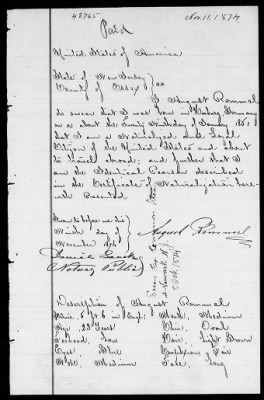 42765
Nov. 11. 1874
Paid
United States of America
State of New Jersey
County of Essex } ss
I August Rommel
do swear that I was born in Germany
on or about the day of January 1851
that I am a Naturalized and Loyal
Citizen of the United States and about
to travel abroad; and further that I
am the Identical Person described
in the Certificate of Naturalization here-
with presented.
Sworn to before me this
Ninth day of
November 1874
August Rommel
Notary Public
Newark N.J.
Description of August Rommel
5 ft 6 in Eng: Mouth, Medium
Age, 23 Years Chin, Oval
Forehead, Low Hair, Light Brown
Eyes, Blue Complexion, Fair
Nose, Medium Face, Long